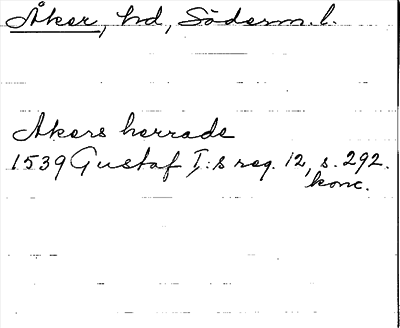 Åker, hd, Söderm. l.
Akers herrade
1539 Gustaf I:s reg. 12, s. 292.
konc.